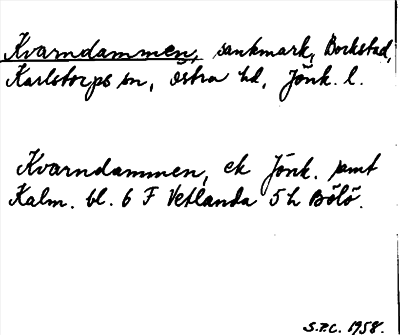 Kvarndammen, sankmark, Bockstad,
Karlstorps sn, östra hd, Jönk. l.
Kvarndammen, ek Jönk. samt
Kalm. bl. 6 F Vetlanda 5 h Bölö.
S.P.C. 1958.